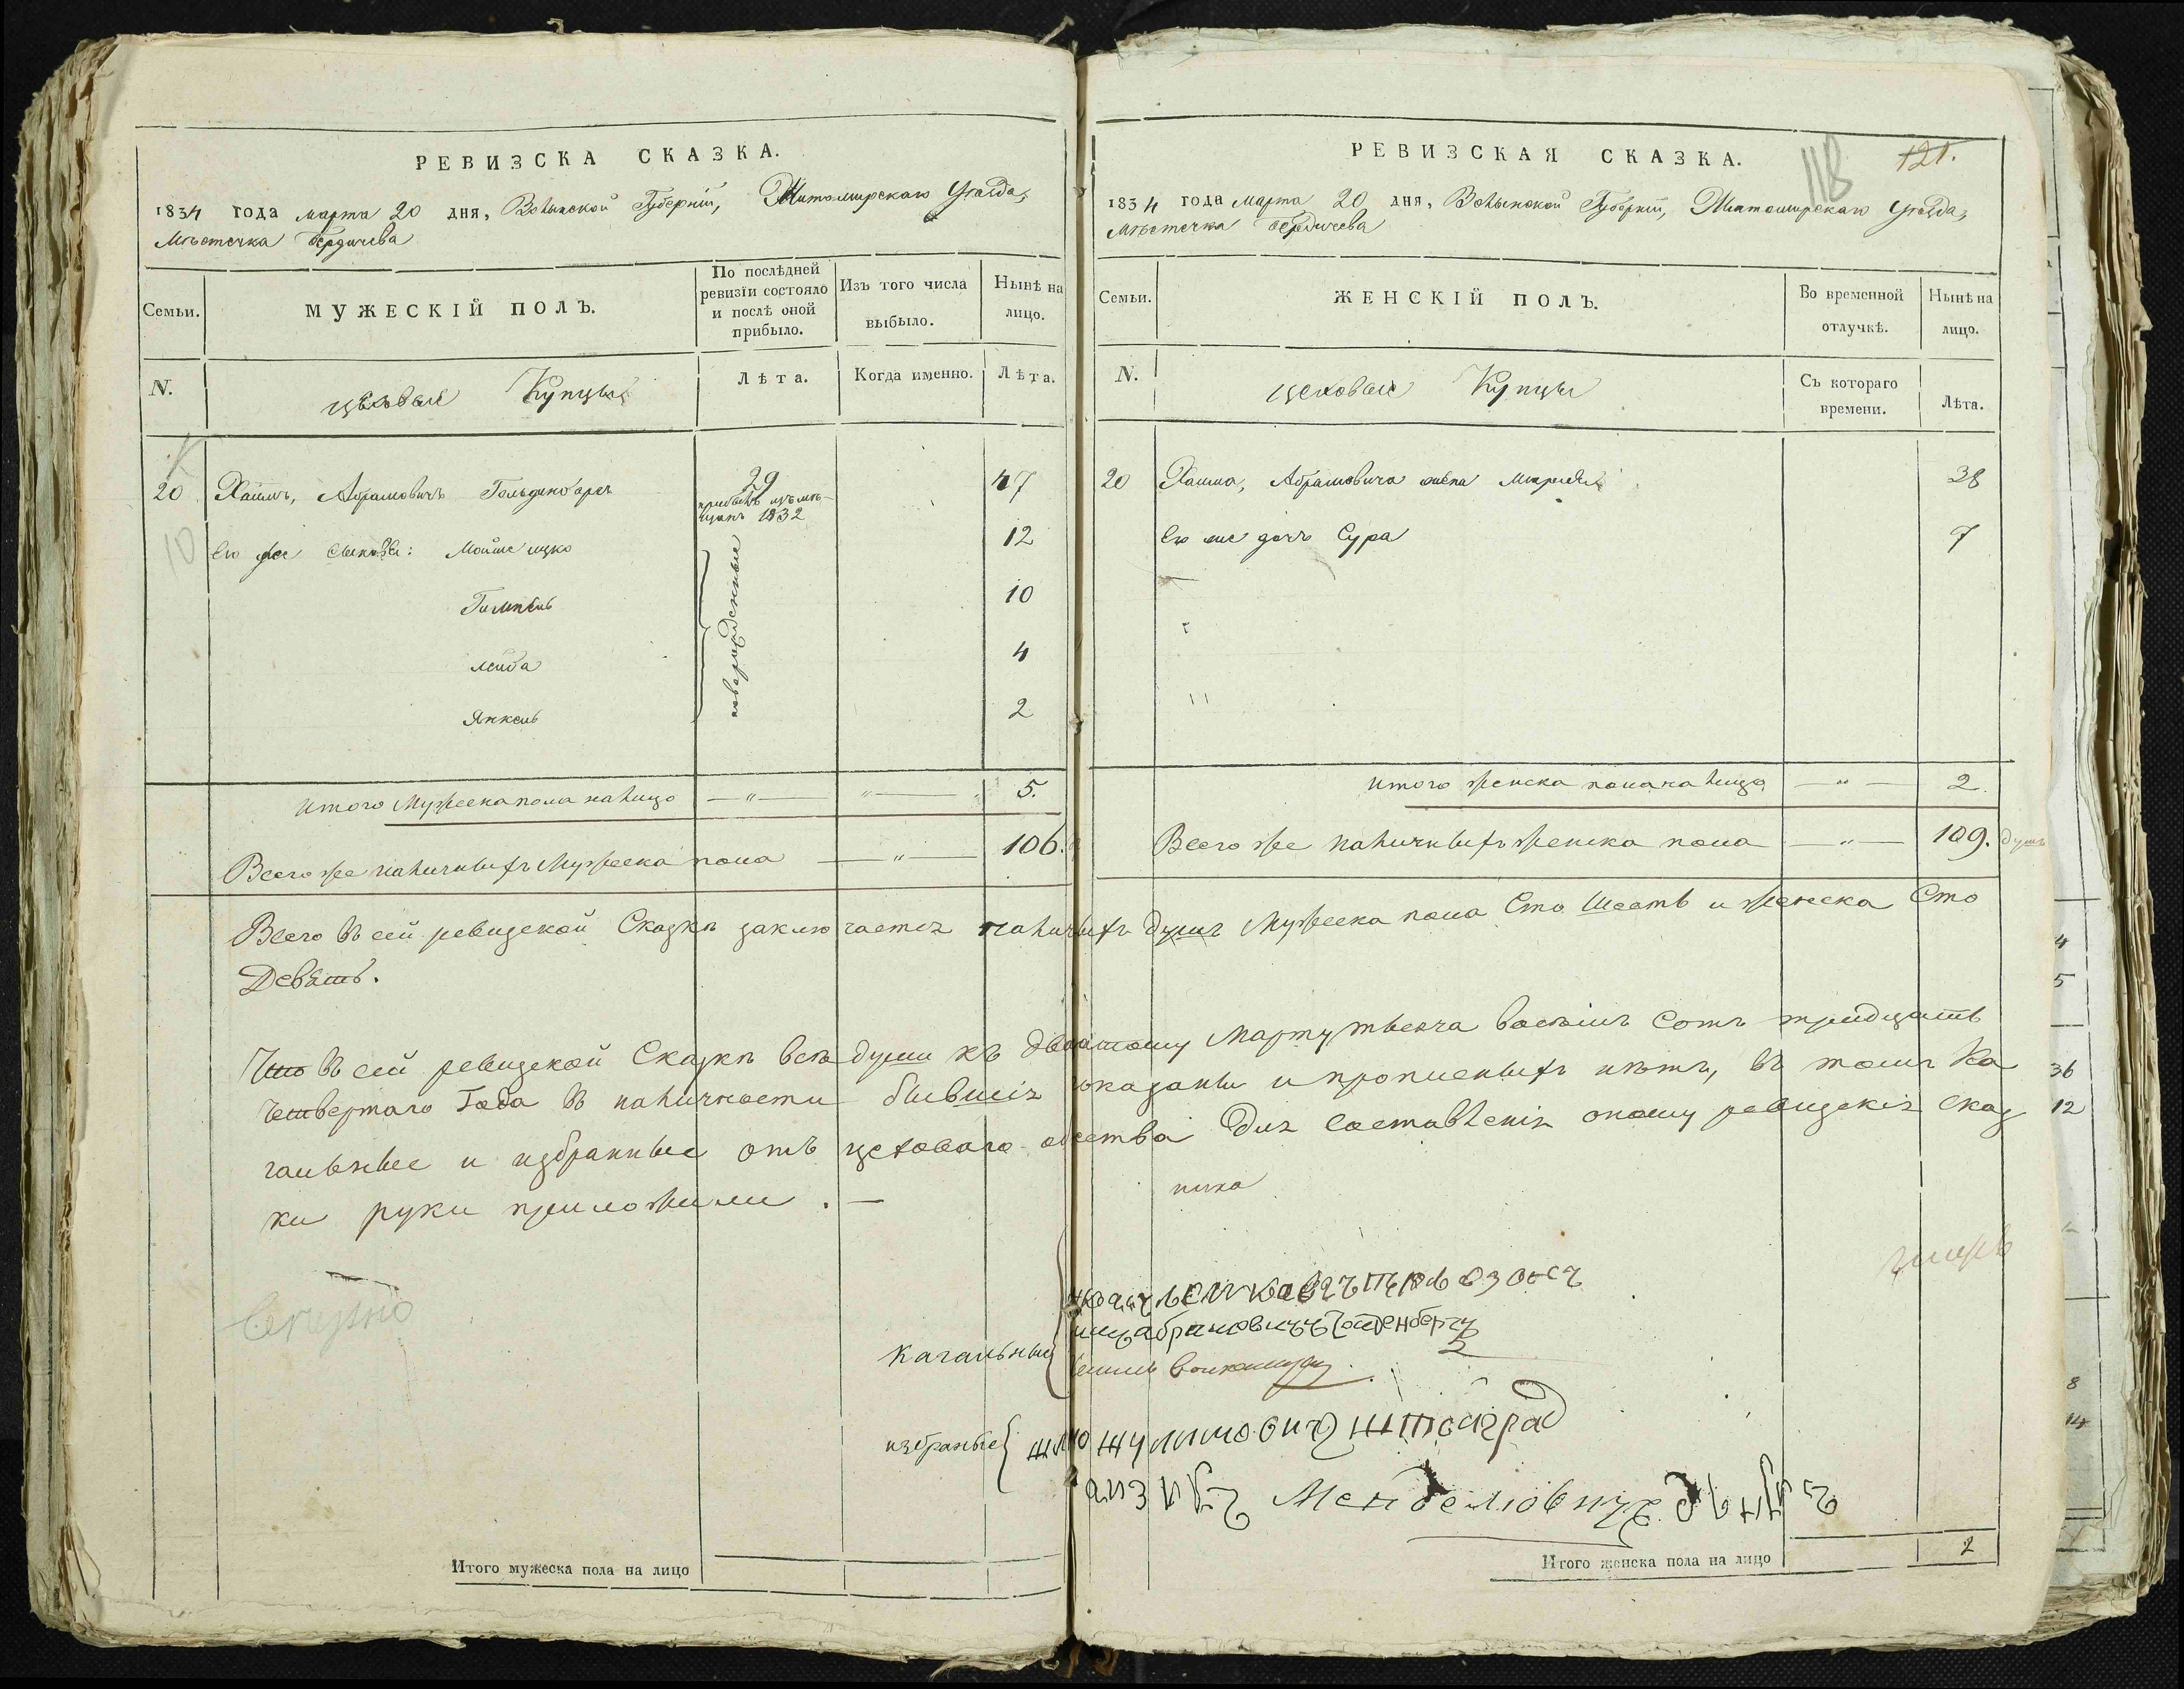 РЕВИЗСКА СКАЗКА.
1834 года марта 20 дня, Волынской Губерніи, Житомирскаго Уезда,
Мѣстечка Бердичева
Семьи.
МУЖЕСКІЙ ПОЛЪ.
По послѣдней ревизіи состояло и послѣ оной прибыло.
Изъ того числа выбыло.
Нынѣ на лицо.
N.
цеховые Купцы
Лѣта.
Когда именно.
Лѣта.
20 Хаимъ, Абрамовичъ 29 47
прибылъ изъ мѣщанъ 1832
10
Его же сыновья: Мойше ицко 12
Гимпель 10
лейба 4
Янкель 2
новорожденные
Итого Мужеска пола налицо — „ — „ — 5.
Всего же наличныхъ Мужеска пола — „ — 106.
РЕВИЗСКАЯ СКАЗКА.
118 121.
1834 года Марта 20 дня, Волынской Губерніи, Житомирскаго Уезда,
Мѣстечка Бердичева
Семьи.
ЖЕНСКІЙ ПОЛЪ.
Во временной отлучкѣ.
Нынѣ на лицо.
N.
цеховые Купцы
Съ котораго времени.
Лѣта.
20 Хаима, Абрамовича жена 38
Его же дочь Сура 7
Итого женска пола на лицо — „ — 2.
Всего же наличныхъ женска пола — „ — 109. душъ
Всего въ сей ревизской Сказкѣ заключается наличныхъ душъ Мужеска пола Сто Шесть и женска Сто
Девять.
Что въ сей ревизской Сказкѣ всѣ души къ двадцатому Марту тысяча восемь Сотъ тридцать
Четвертаго Года въ наличности бывшія показаны и прописныхъ нѣтъ, въ томъ Ка
гальные и избранные отъ цеховаго общества для Составленія оному ревизскія сказ
ки руки приложили. —
Кагальный
абрамовичъ
избраные
Менделювичъ
Итого мужеска пола на лицо
Итого женска пола на лицо 2
4
5
36
12
8
14